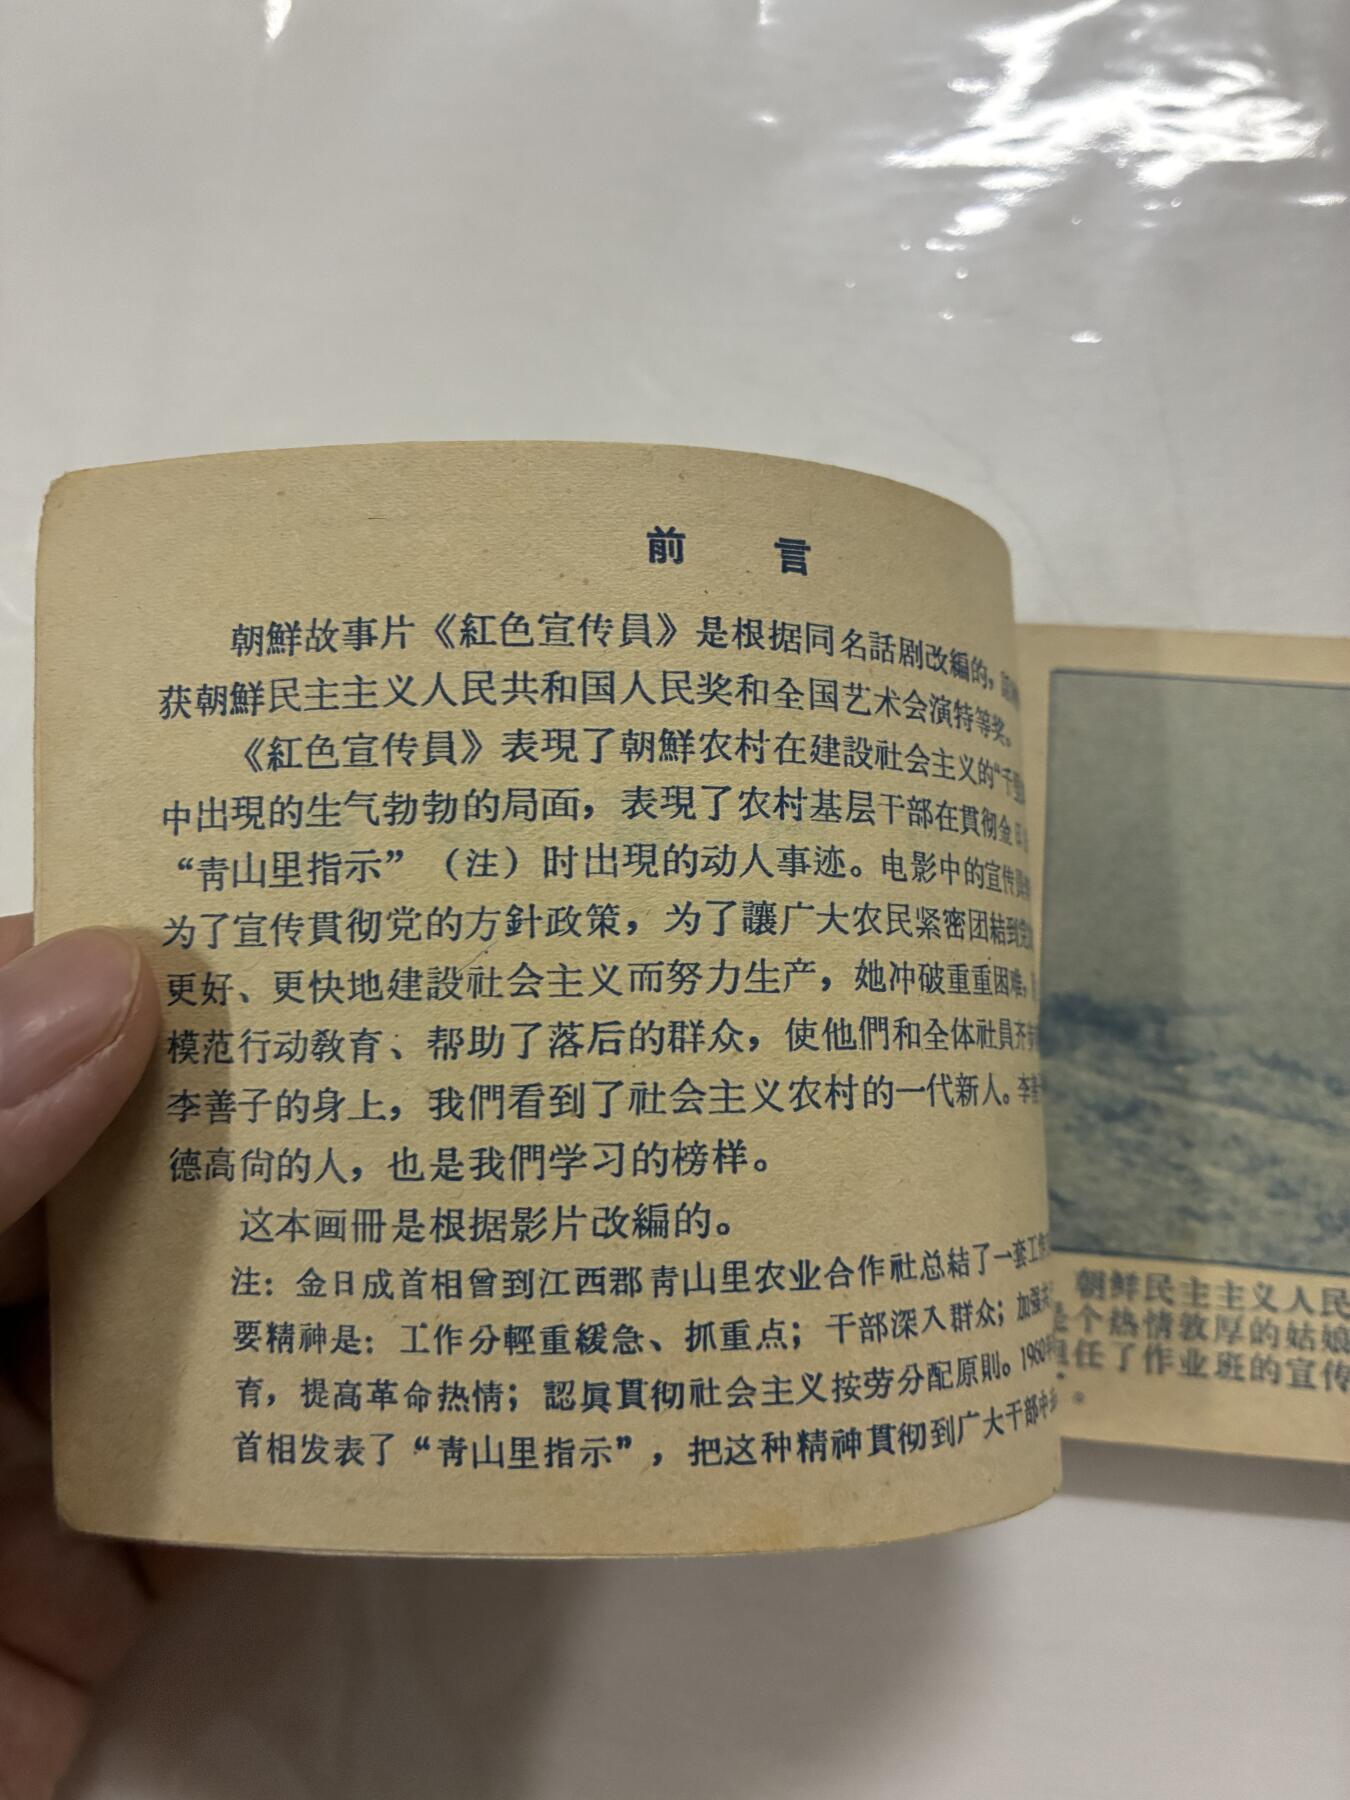 前　言
朝鮮故事片《紅色宣传員》是根据同名話剧改編的，
获朝鮮民主主义人民共和国人民奖和全国艺术会演特等奖。
《紅色宣传員》表現了朝鮮农村在建設社会主义的“千里
中出現的生气勃勃的局面，表現了农村基层干部在貫彻金日
“靑山里指示”（注）时出現的动人事迹。电影中的宣传員
为了宣传貫彻党的方針政策，为了讓广大农民紧密团結到党
更好、更快地建設社会主义而努力生产，她冲破重重困难，
模范行动敎育、帮助了落后的群众，使他們和全体社員齐步
李善子的身上，我們看到了社会主义农村的一代新人。李善
德高尙的人，也是我們学习的榜样。
这本画冊是根据影片改編的。
注：金日成首相曾到江西郡靑山里农业合作社总結了一套工作
要精神是：工作分輕重緩急、抓重点；干部深入群众；加强
育，提高革命热情；認眞貫彻社会主义按劳分配原則。1960
首相发表了“靑山里指示”，把这种精神貫彻到广大干部中
朝鮮民主主义人民
个热情敦厚的姑娘
任了作业班的宣传
。